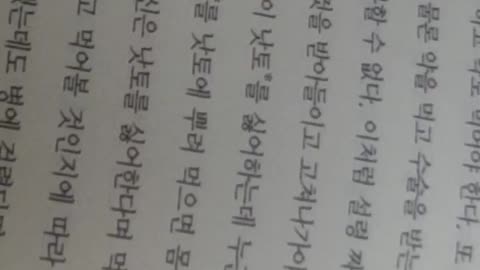 약도 먹어야 한다. 또
물론 약을 먹고 수술을 받는
할 수 없다. 이처럼 설령
것을 받아들이고 고쳐나가야
이 낫토*를 싫어하는데
낫토에 뿌려 먹으면 몸
낫토를 싫어한다며
고 먹어볼 것인지에 따라
는데도 병에